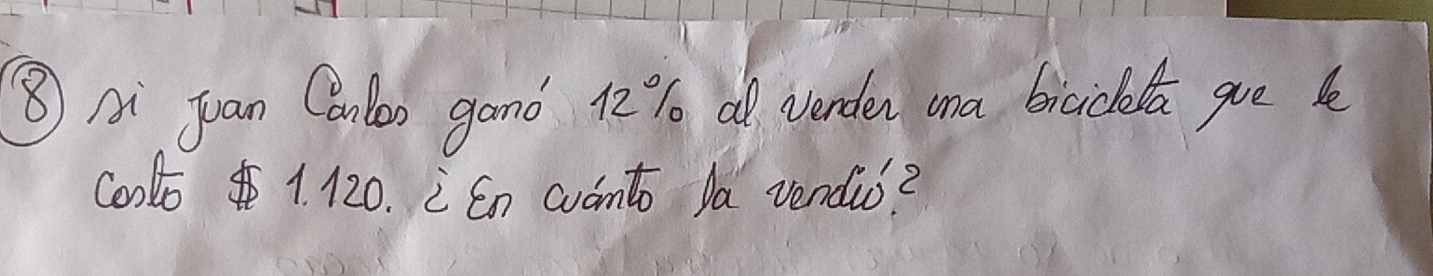 ⑧ si Juan Carlos ganó 12% al vender una bicicleta que le
costo $ 1.120. ¿ En cuánto la vendió?